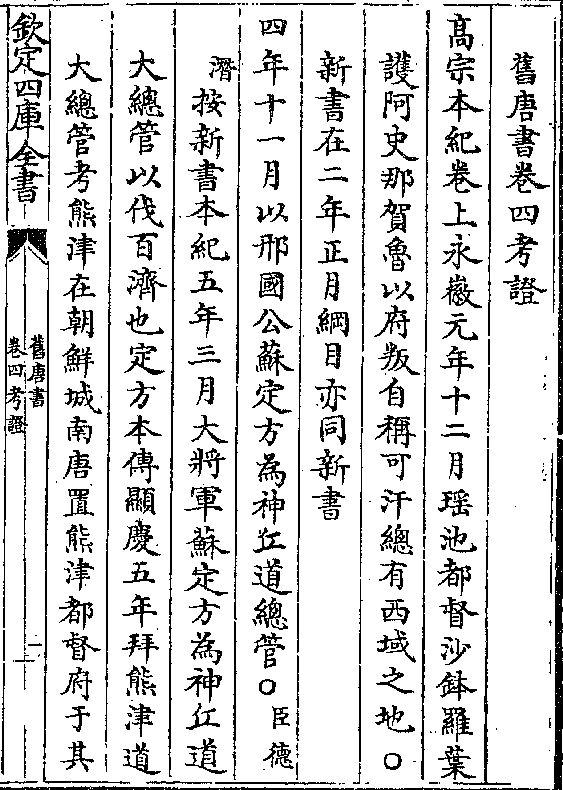 舊唐書卷四考證
高宗本紀卷上永徽元年十二月瑶池都督沙鉢羅葉
護阿史那賀魯以府叛自稱可汗總有西域之地○
新書在二年正月綱目亦同新書
四年十一月以邢國公蘇定方為神丘道總管○臣德
潛按新書本紀五年三月大將軍蘇定方為神丘道
大總管以伐百濟也定方本傳顯慶五年拜熊津道
大總管考熊津在朝鮮城南唐置熊津都督府于其
欽定四庫全書
舊唐書
卷四考證
一